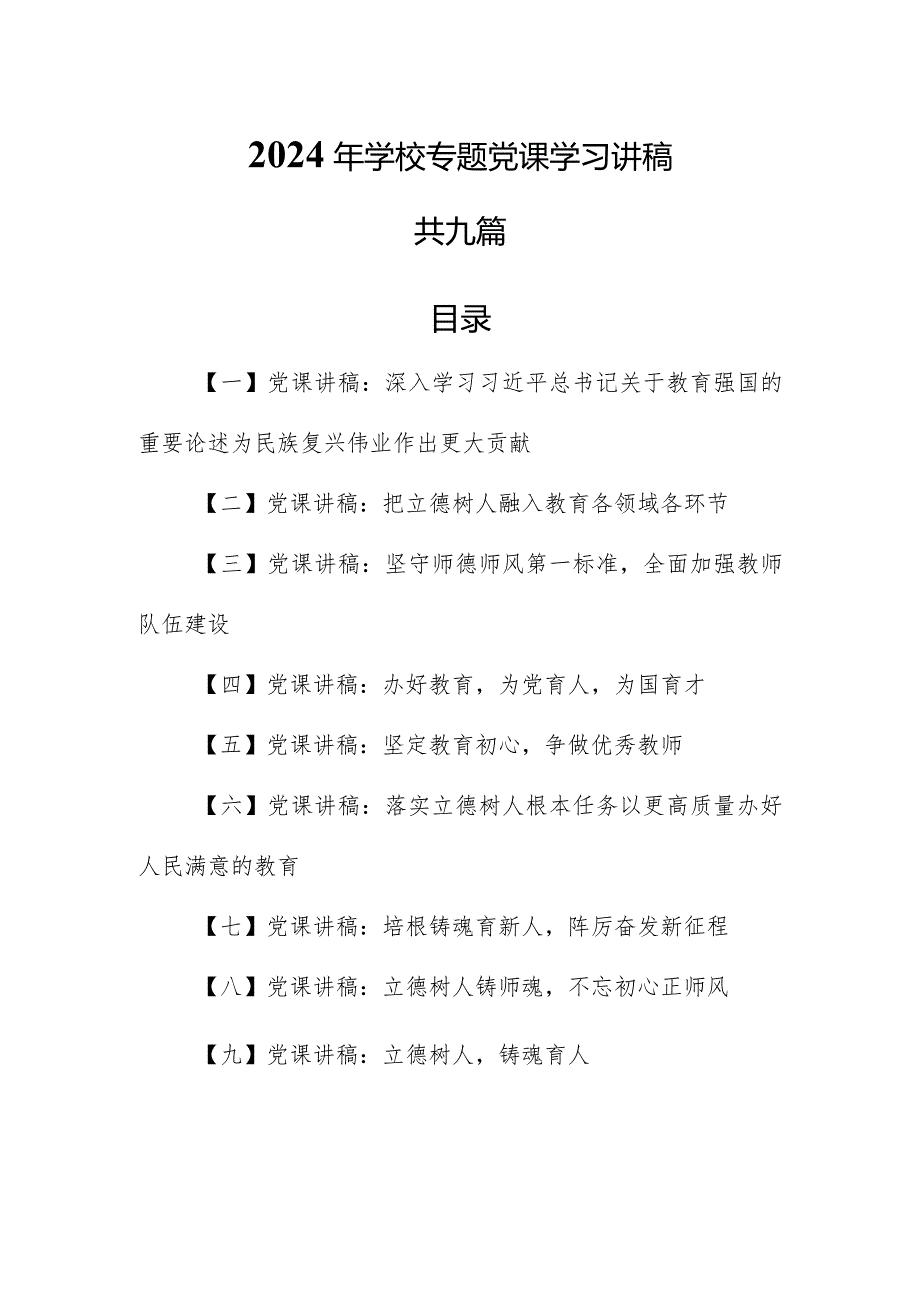 2024 年学校专题党课学习讲稿
共九篇
目录
【一】党课讲稿：深入学习习近平总书记关于教育强国的
重要论述为民族复兴伟业作出更大贡献
【二】党课讲稿：把立德树人融入教育各领域各环节
【三】党课讲稿：坚守师德师风第一标准，全面加强教师
队伍建设
【四】党课讲稿：办好教育，为党育人，为国育才
【五】党课讲稿：坚定教育初心，争做优秀教师
【六】党课讲稿：落实立德树人根本任务以更高质量办好
人民满意的教育
【七】党课讲稿：培根铸魂育新人，阵厉奋发新征程
【八】党课讲稿：立德树人铸师魂，不忘初心正师风
【九】党课讲稿：立德树人，铸魂育人